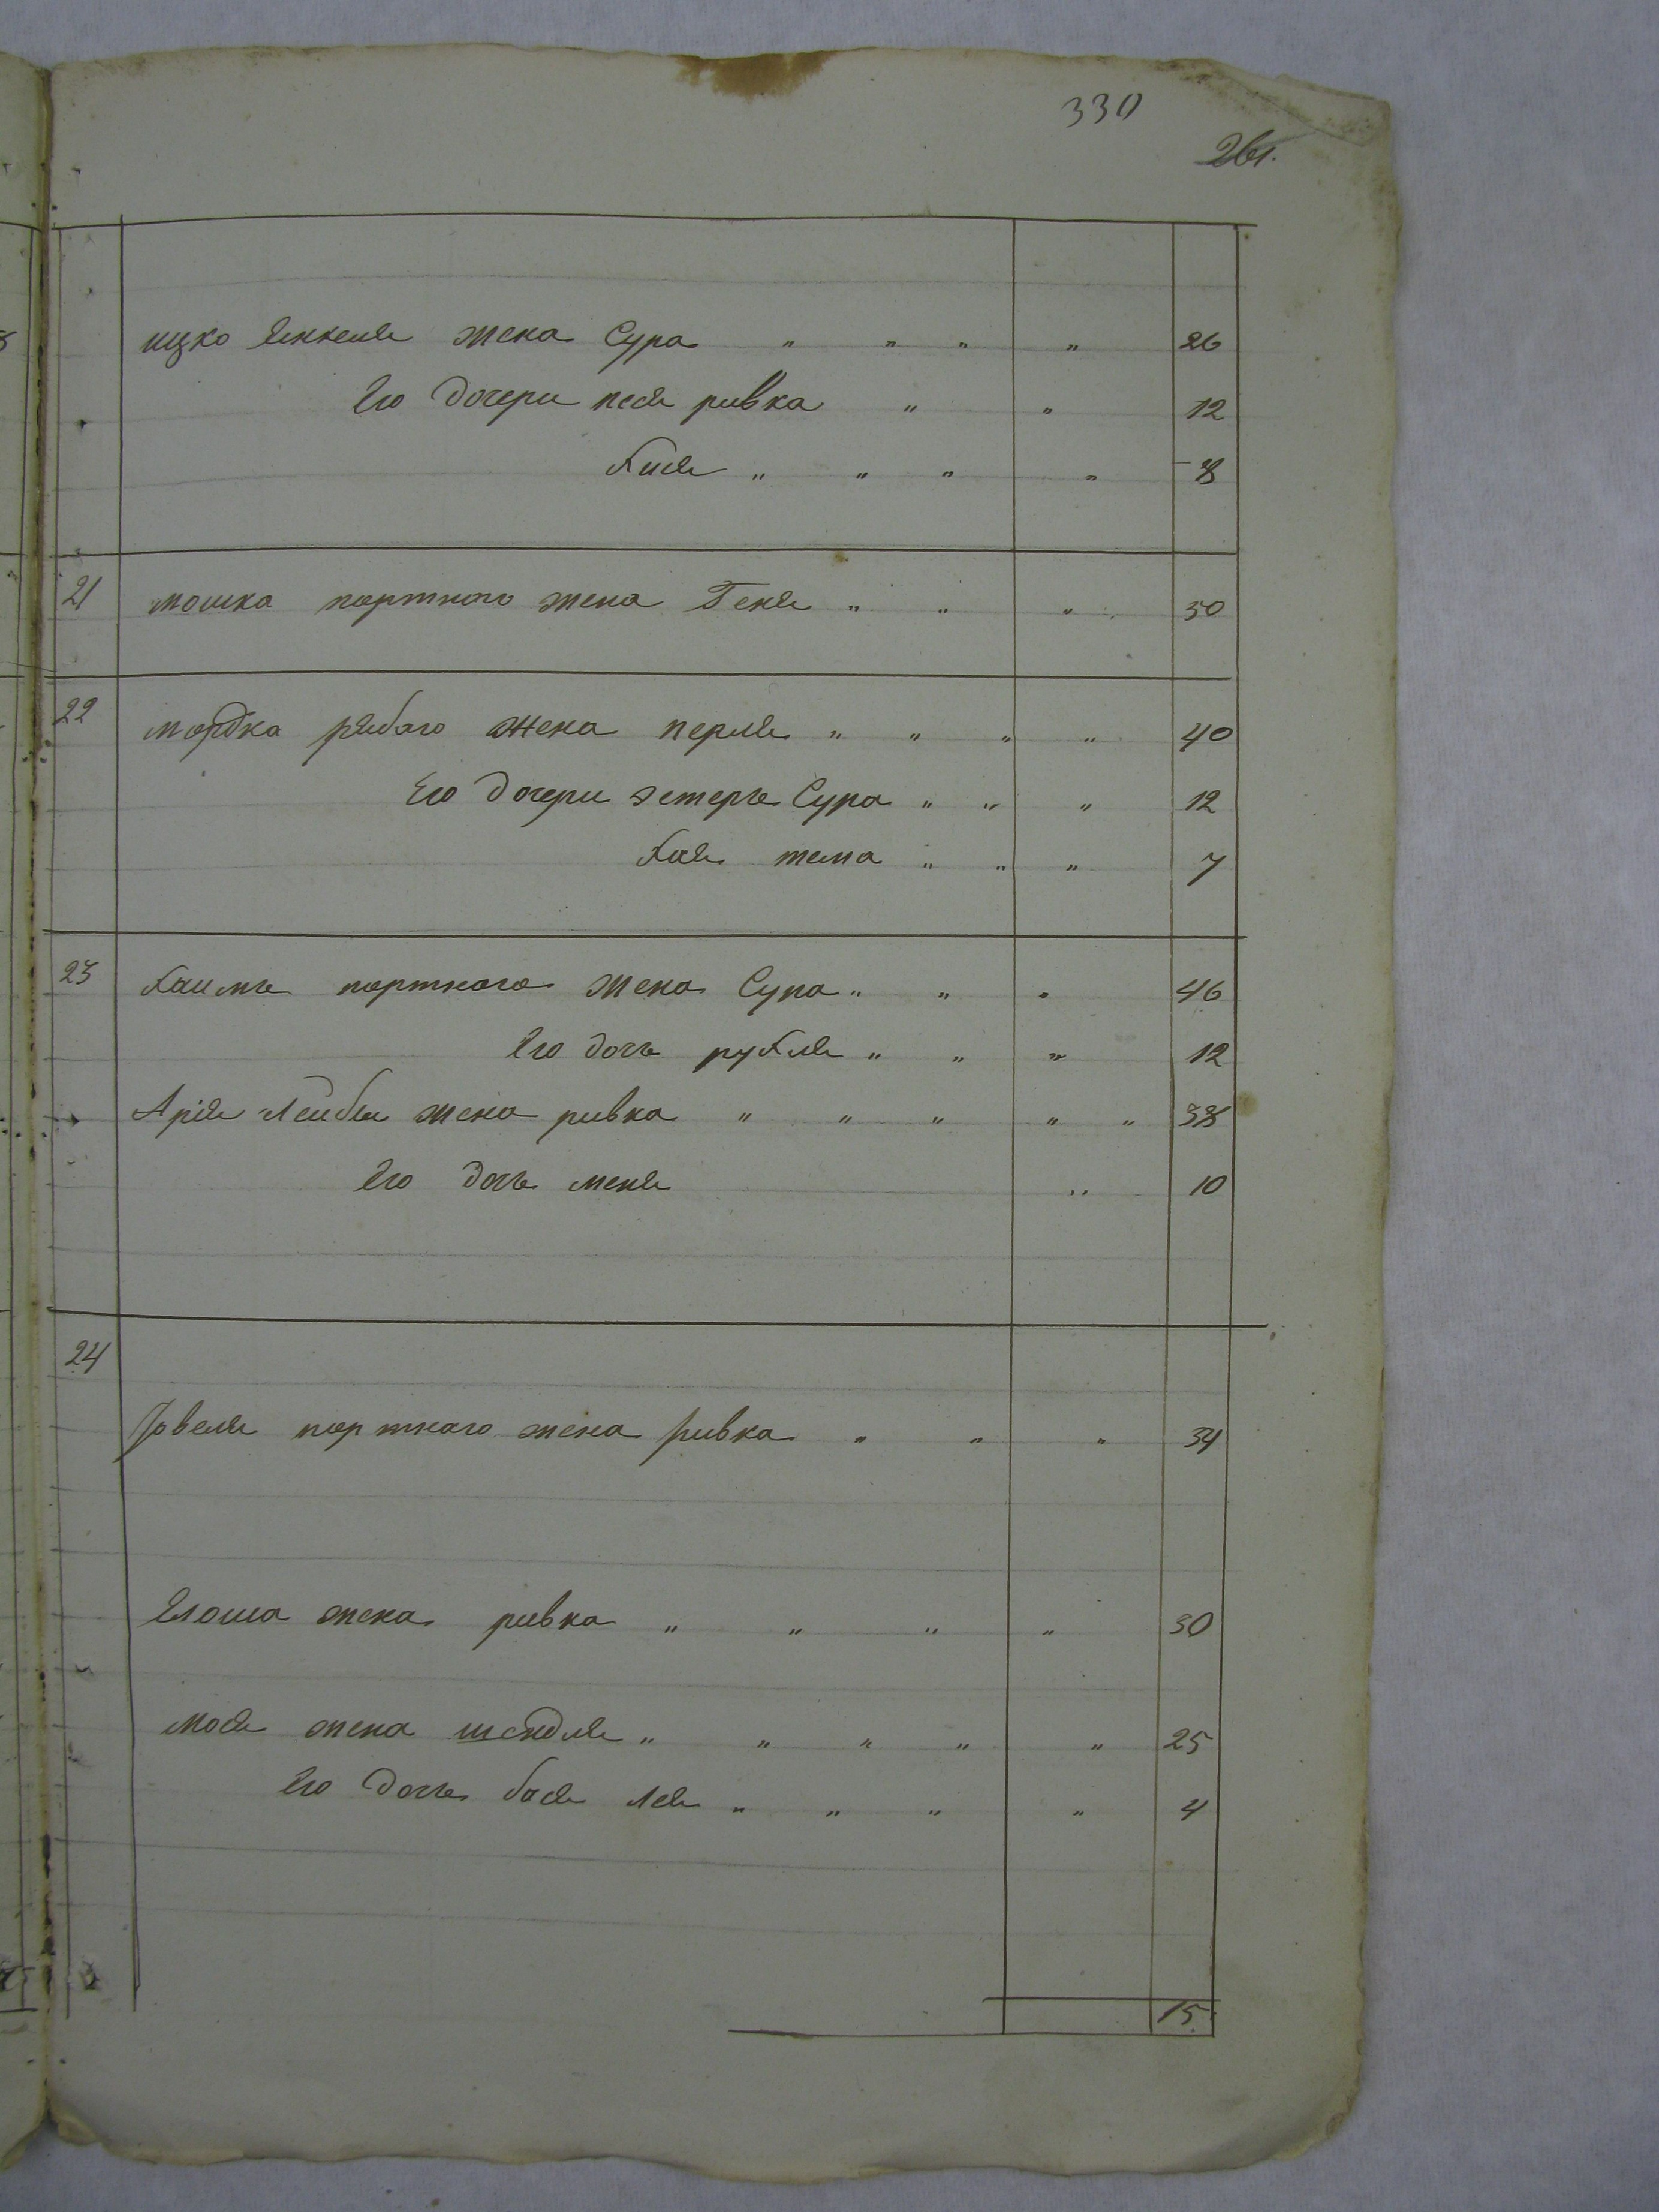 330
261.
ицко Янкеля жена Сура " " " " 26
Его дочери песя ривка " " 12
Хися " " " " 8
21 мошка портного жена Геня " " " 50
22 мордка рябаго жена перля " " " " 40
Его дочери эстеръ Сура " " " 12
Хая тема " " " 7
23 Хаимъ портного жена Сура " " " 46
Его дочь рухля " " " 12
Арія Лейбы жена ривка " " " " " 38
Его дочь меня " 10
24
Іовеля портного жена ривка " " " 34
жена ривка " " " " 30
мося жена шендля " " " " " 25
Его дочь бася лея " " " " 4
15.